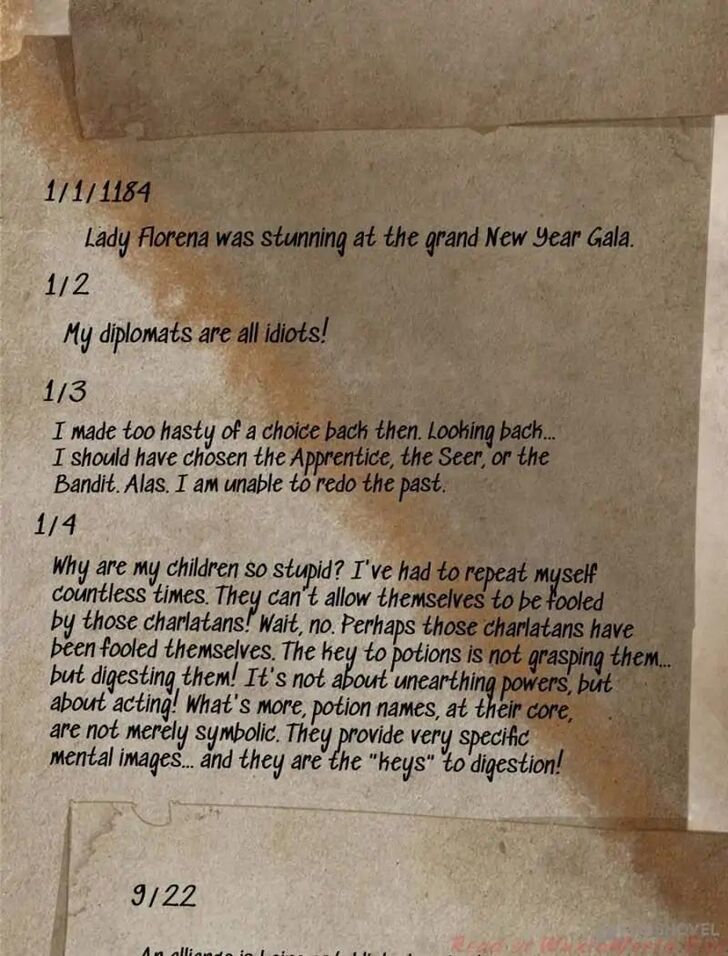 1/1/1184
Lady Florena was stunning at the grand New Year Gala.
1/2
My diplomats are all idiots!
1/3
I made too hasty of a choice back then. Looking back...
I should have chosen the Apprentice, the Seer, or the
Bandit. Alas. I am unable to redo the past.
1/4
Why are my children so stupid? I've had to repeat myself
countless times. They can't allow themselves to be fooled
by those charlatans! Wait, no. Perhaps those charlatans have
been fooled themselves. The key to potions is not grasping them...
but digesting them! It's not about unearthing powers, but
about acting! What's more, potion names, at their core,
are not merely symbolic. They provide very specific
mental images... and they are the "keys" to digestion!
9/22
An alliance is being
Read at